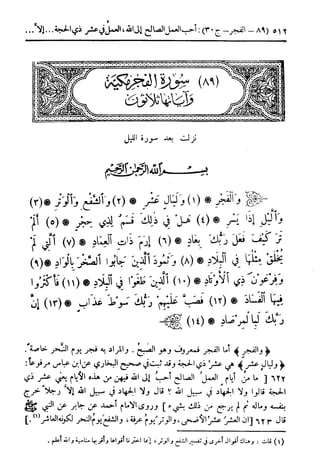 ٥١٢ (٨٩ – الفجر – ج ٣٠): أحب العمل الصالح إلى الله، العمل في عشر ذي الحجة... إلا...
(٨٩) سورة الفجر مكية
وآياتها ثلاثون
نزلت بعد سورة الليل
بسم الله الرحمن الرحيم
وَالْفَجْرِ * (١) وَلَيَالٍ عَشْرٍ * (٢) وَالشَّفْعِ وَالْوَتْرِ * (٣)
وَالَّيْلِ إِذَا يَسْرِ * (٤) هَلْ فِي ذَلِكَ قَسَمٌ لِذِي حِجْرٍ * (٥) أَلَمْ
تَرَ كَيْفَ فَعَلَ رَبُّكَ بِعَادٍ * (٦) إِرَمَ ذَاتِ الْعِمَادِ * (٧) الَّتِي لَمْ
يُخْلَقْ مِثْلُهَا فِي الْبِلَادِ * (٨) وَثَمُودَ الَّذِينَ جَابُوا الصَّخْرَ بِالْوَادِ * (٩)
وَفِرْعَوْنَ ذِي الْأَوْتَادِ * (١٠) الَّذِينَ طَغَوْا فِي الْبِلَادِ * (١١) فَأَكْثَرُوا
فِيهَا الْفَسَادَ * (١٢) فَصَبَّ عَلَيْهِمْ رَبُّكَ سَوْطَ عَذَابٍ * (١٣) إِنَّ
رَبَّكَ لَبِالْمِرْصَادِ * (١٤)
﴿والفجر﴾ أما الفجر فمعروف وهو الصبح . والمراد به فجر يوم النحر خاصة .
﴿وليال عشر﴾ هي عشر ذي الحجة وقد ثبت في صحيح البخاري عن ابن عباس مرفوعاً:
٦٢٢ [ ما من أيام العمل الصالح أحب إلى الله فيهن من هذه الأيام يعني عشر ذي
الحجة قالوا ولا الجهاد في سبيل الله ؟ قال ولا الجهاد في سبيل الله إلا رجلاً خرج
بنفسه وماله ثم لم يرجع من ذلك بشيء ] وروى الامام أحمد عن جابر عن النبي ﷺ
قال ٦٢٣ [ ان العشر عشر الأضحى، والوتر يوم عرفة، والشفع يوم النحر لكونه العاشر (١). ]
(١) قلت : وهناك أقوال أخرى في تفسير الشفع والوتر، إنما اخترنا أقواها وأقربها مناسبة والله أعلم .